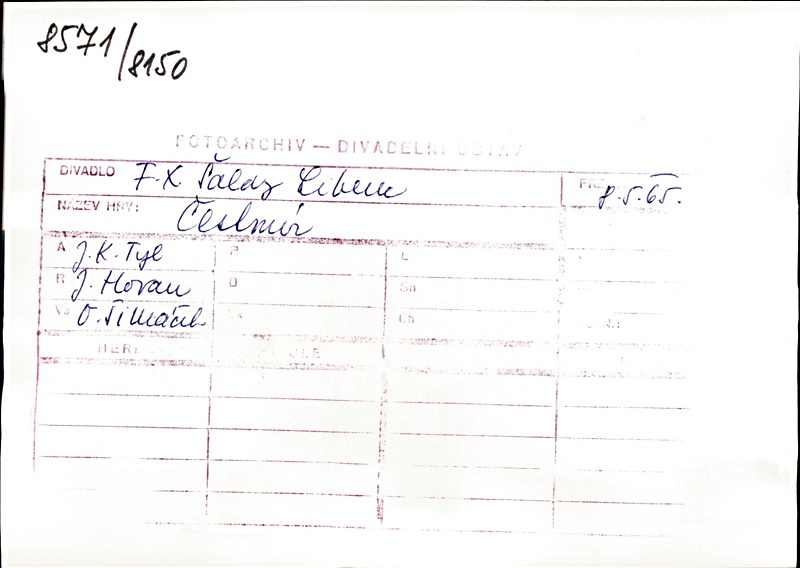 8571/8150
FOTOARCHIV — DIVADELNÍ ÚSTAV
DIVADLO F.X. Šaldy Liberec 8.5.65.
NÁZEV HRY: Čestmír
A J.K. Tyl P L
R J. Horan D Sn
O. Šimáček Ch
HERE